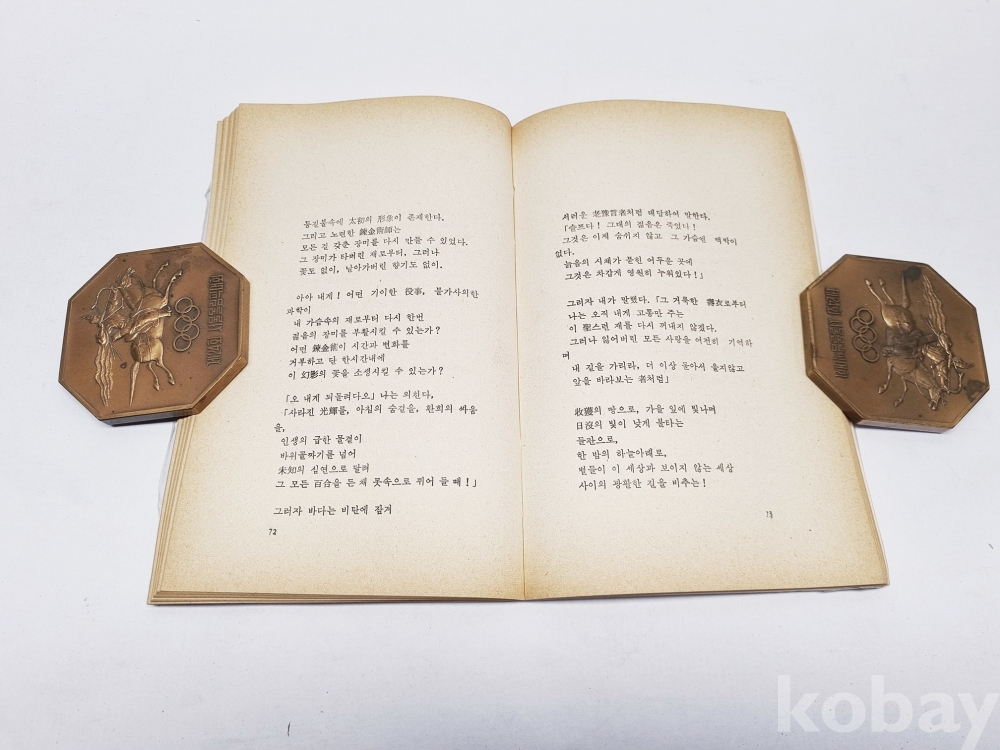 동질물속에 太初의 形象이 존재한다.
그리고 노련한 錬金術師는
모든 걸 갖춘 장미를 다시 만들 수 있었다.
그 장미가 타버린 재로부터. 그러나
꽃도 없이, 날아가버린 향기도 없이.
아아 내게! 어떤 기이한 役事, 불가사의한
과학이
내 가슴속의 재로부터 다시 한번
젊음의 장미를 부활시킬 수 있는가?
어떤 錬金術이 시간과 변화를
거부하고 단 한시간내에
이 幻影의 꽃을 소생시킬 수 있는가?
「오 내게 되돌려다오」 나는 외친다,
「사라진 光輝를, 아침의 숨결을, 환희의 싸움
을,
인생의 급한 물결이
바위골짜기를 넘어
未知의 심연으로 달려
그 모든 百合을 든 채 못속으로 뛰어 들 때!」
그러자 바다는 비탄에 잠겨
72
서러운 老豫言者처럼 대답하여 말한다.
「슬프다! 그대의 젊음은 죽었다!
그것은 이제 숨쉬지 않고 그 가슴엔 맥박이
없다.
늙음의 시체가 묻힌 어두운 곳에
그것은 차갑게 영원히 누워있다!」
그러자 내가 말했다. 「그 거룩한 壽衣로부터
나는 오직 내게 고통만 주는
이 聖스런 재를 다시 꺼내지 않겠다.
그러나 잃어버린 모든 사랑을 여전히 기억하
며
내 길을 가리라, 더 이상 돌아서 울지않고
앞을 바라보는 者처럼」
收獲의 땅으로, 가을 잎에 빛나며
日沒의 빛이 낮게 불타는
들판으로,
한 밤의 하늘아래로,
별들이 이 세상과 보이지 않는 세상
사이의 광활한 길을 비추는!
kobay